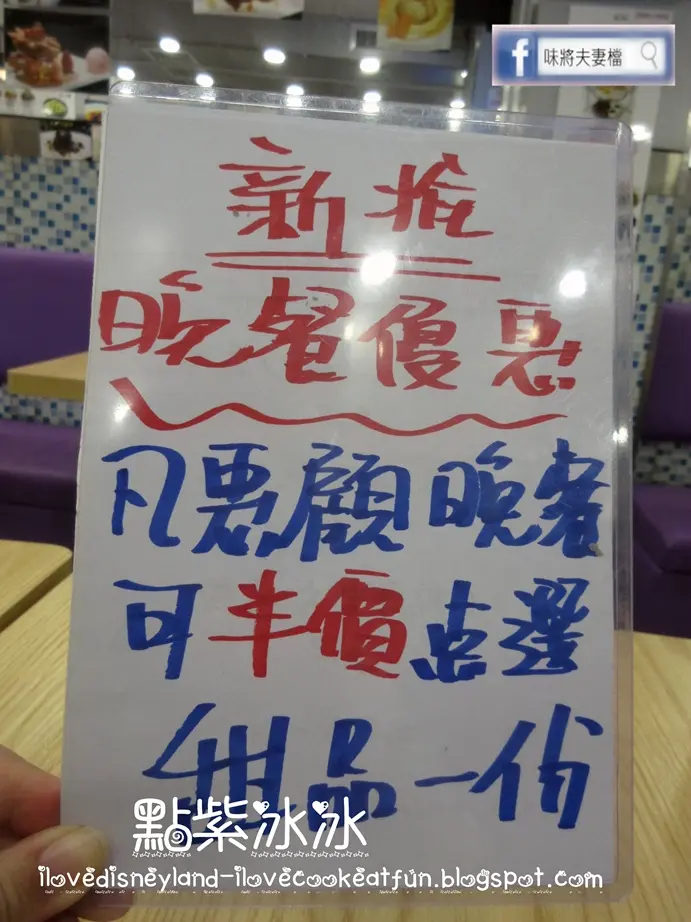 味將夫妻檔
新推
晚餐優惠
凡惠顧晚餐
可半價点選
甜品一份
點紫冰冰
ilovedisneyland-ilovecookeatfun.blogspot.com